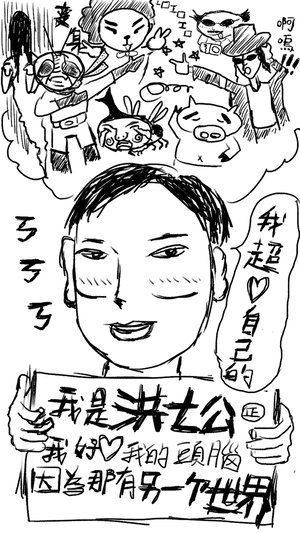 變身
啊嗚!!
ㄎㄎㄎ
我超♡自己的
我是洪士公 正
我好♡我的頭腦
因為那有另一个世界